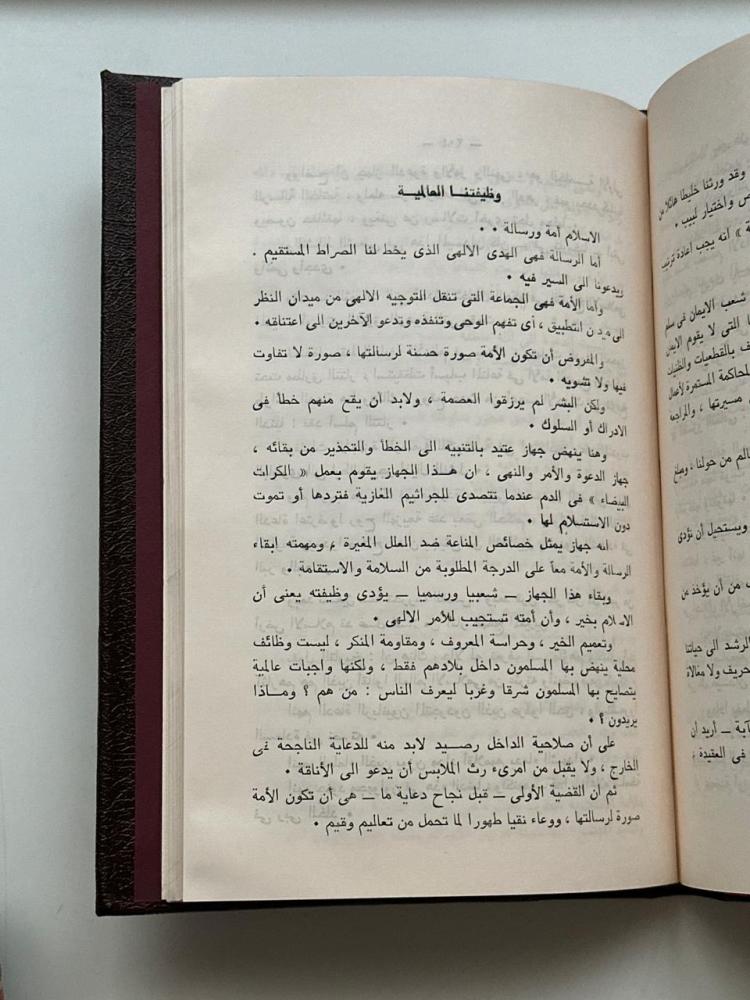 وظيفتنا العالمية
الاسلام أمة ورسالة • •
أما الرسالة فهى الهدى الالهى الذى يخط لنا الصراط المستقيم .
ويدعونا الى السير فيه •
وأما الأمة فهى الجماعة التى تنقل التوجيه الالهى من ميدان النظر
الى ميدان التطبيق ، أى تفهم الوحى وتنفذه وتدعو الآخرين الى اعتناقه •
والمفروض أن تكون الأمة صورة حسنة لرسالتها ، صورة لا تفاوت
فيها ولا تشويه •
ولكن البشر لم يرزقوا العصمة ، ولابد أن يقع منهم خطأ فى
الادراك أو السلوك •
وهنا ينهض جهاز عتيد بالتنبيه الى الخطأ والتحذير من بقائه ،
جهاز الدعوة والأمر والنهى ، ان هـذا الجهاز يقوم بعمل « الكرات
البيضاء » فى الدم عندما تتصدى للجراثيم الغازية فتردها أو تموت
دون الاستسلام لها •
انه جهاز يمثل خصائص المناعة ضد العلل المغيرة ، ومهمته إبقاء
الرسالة والأمة معاً على الدرجة المطلوبة من السلامة والاستقامة •
وبقاء هذا الجهاز ـ شعبيا ورسميا ـ يؤدى وظيفته يعنى أن
الاسلام بخير ، وأن أمته تستجيب للأمر الالهى •
وتعميم الخير ، وحراسة المعروف ، ومقاومة المنكر ، ليست وظائف
محلية ينهض بها المسلمون داخل بلادهم فقط ، ولكنها واجبات عالمية
يتصايح بها المسلمون شرقا وغربا ليعرف الناس : من هم ؟ ومـاذا
يريدون ؟ •
على أن صلاحية الداخل رصـيد لابد منه للدعاية الناجحة فى
الخارج ، ولا يقبل من امرىء رث الملابس أن يدعو الى الأناقة •
ثم ان القضية الأولى ـ قبل نجاح دعاية ما ـ هى أن تكون الأمة
صورة لرسالتها ، ووعاء نقيا طهورا لما تحمل من تعاليم وقيم •
وقد ورثنا خليطا هائلا من
واختيار لبيب •
» أنه يجب اعادة ترتيب
شعب الايمان فى سلم
التى لا يقوم الايمان
بالقطعيات والظنيات
لمحاكمة المستمرة لأعمال
مسيرتها ، والمراجعة
الم من حولنا ، ومبلغ
ويستحيل أن تؤدى
من أن يؤخذ من
الرشد الى حياتنا
حريف ولا مغالاة
ـ أريد أن
فى العقيدة